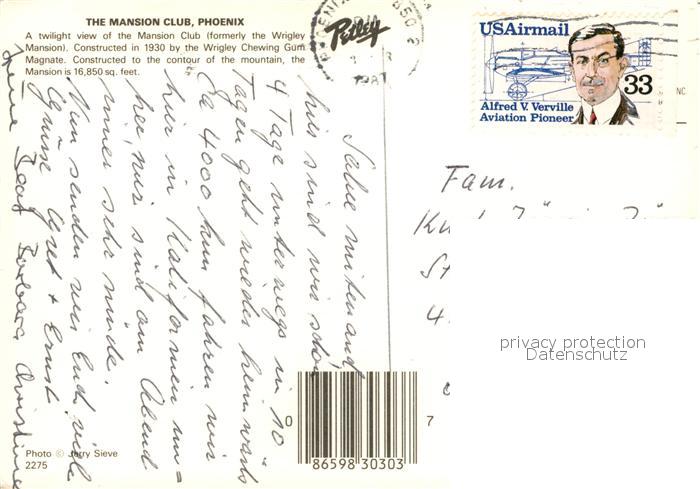 THE MANSION CLUB, PHOENIX
A twilight view of the Mansion Club (formerly the Wrigley
Mansion). Constructed in 1930 by the Wrigley Chewing Gum
Magnate. Constructed to the contour of the mountain, the
Mansion is 16,850 sq. feet.
Petley
1987
USAirmail
33
Alfred V. Verville
Aviation Pioneer
Salue mitenand,
hüt sind wir schon
4 Tage unterwegs in 10
Tagen geht wieder heimwärts
Ca 4000 km fahren wir
hier in Kalifornien um=
her, wir sind am Abend
immer sehr müde.
Nun senden wir Euch viele
Grüsse Gret + Ernst
Barbara Christine
Fam.
privacy protection
Datenschutz
Photo © Jerry Sieve
2275
0 86598 30303 7